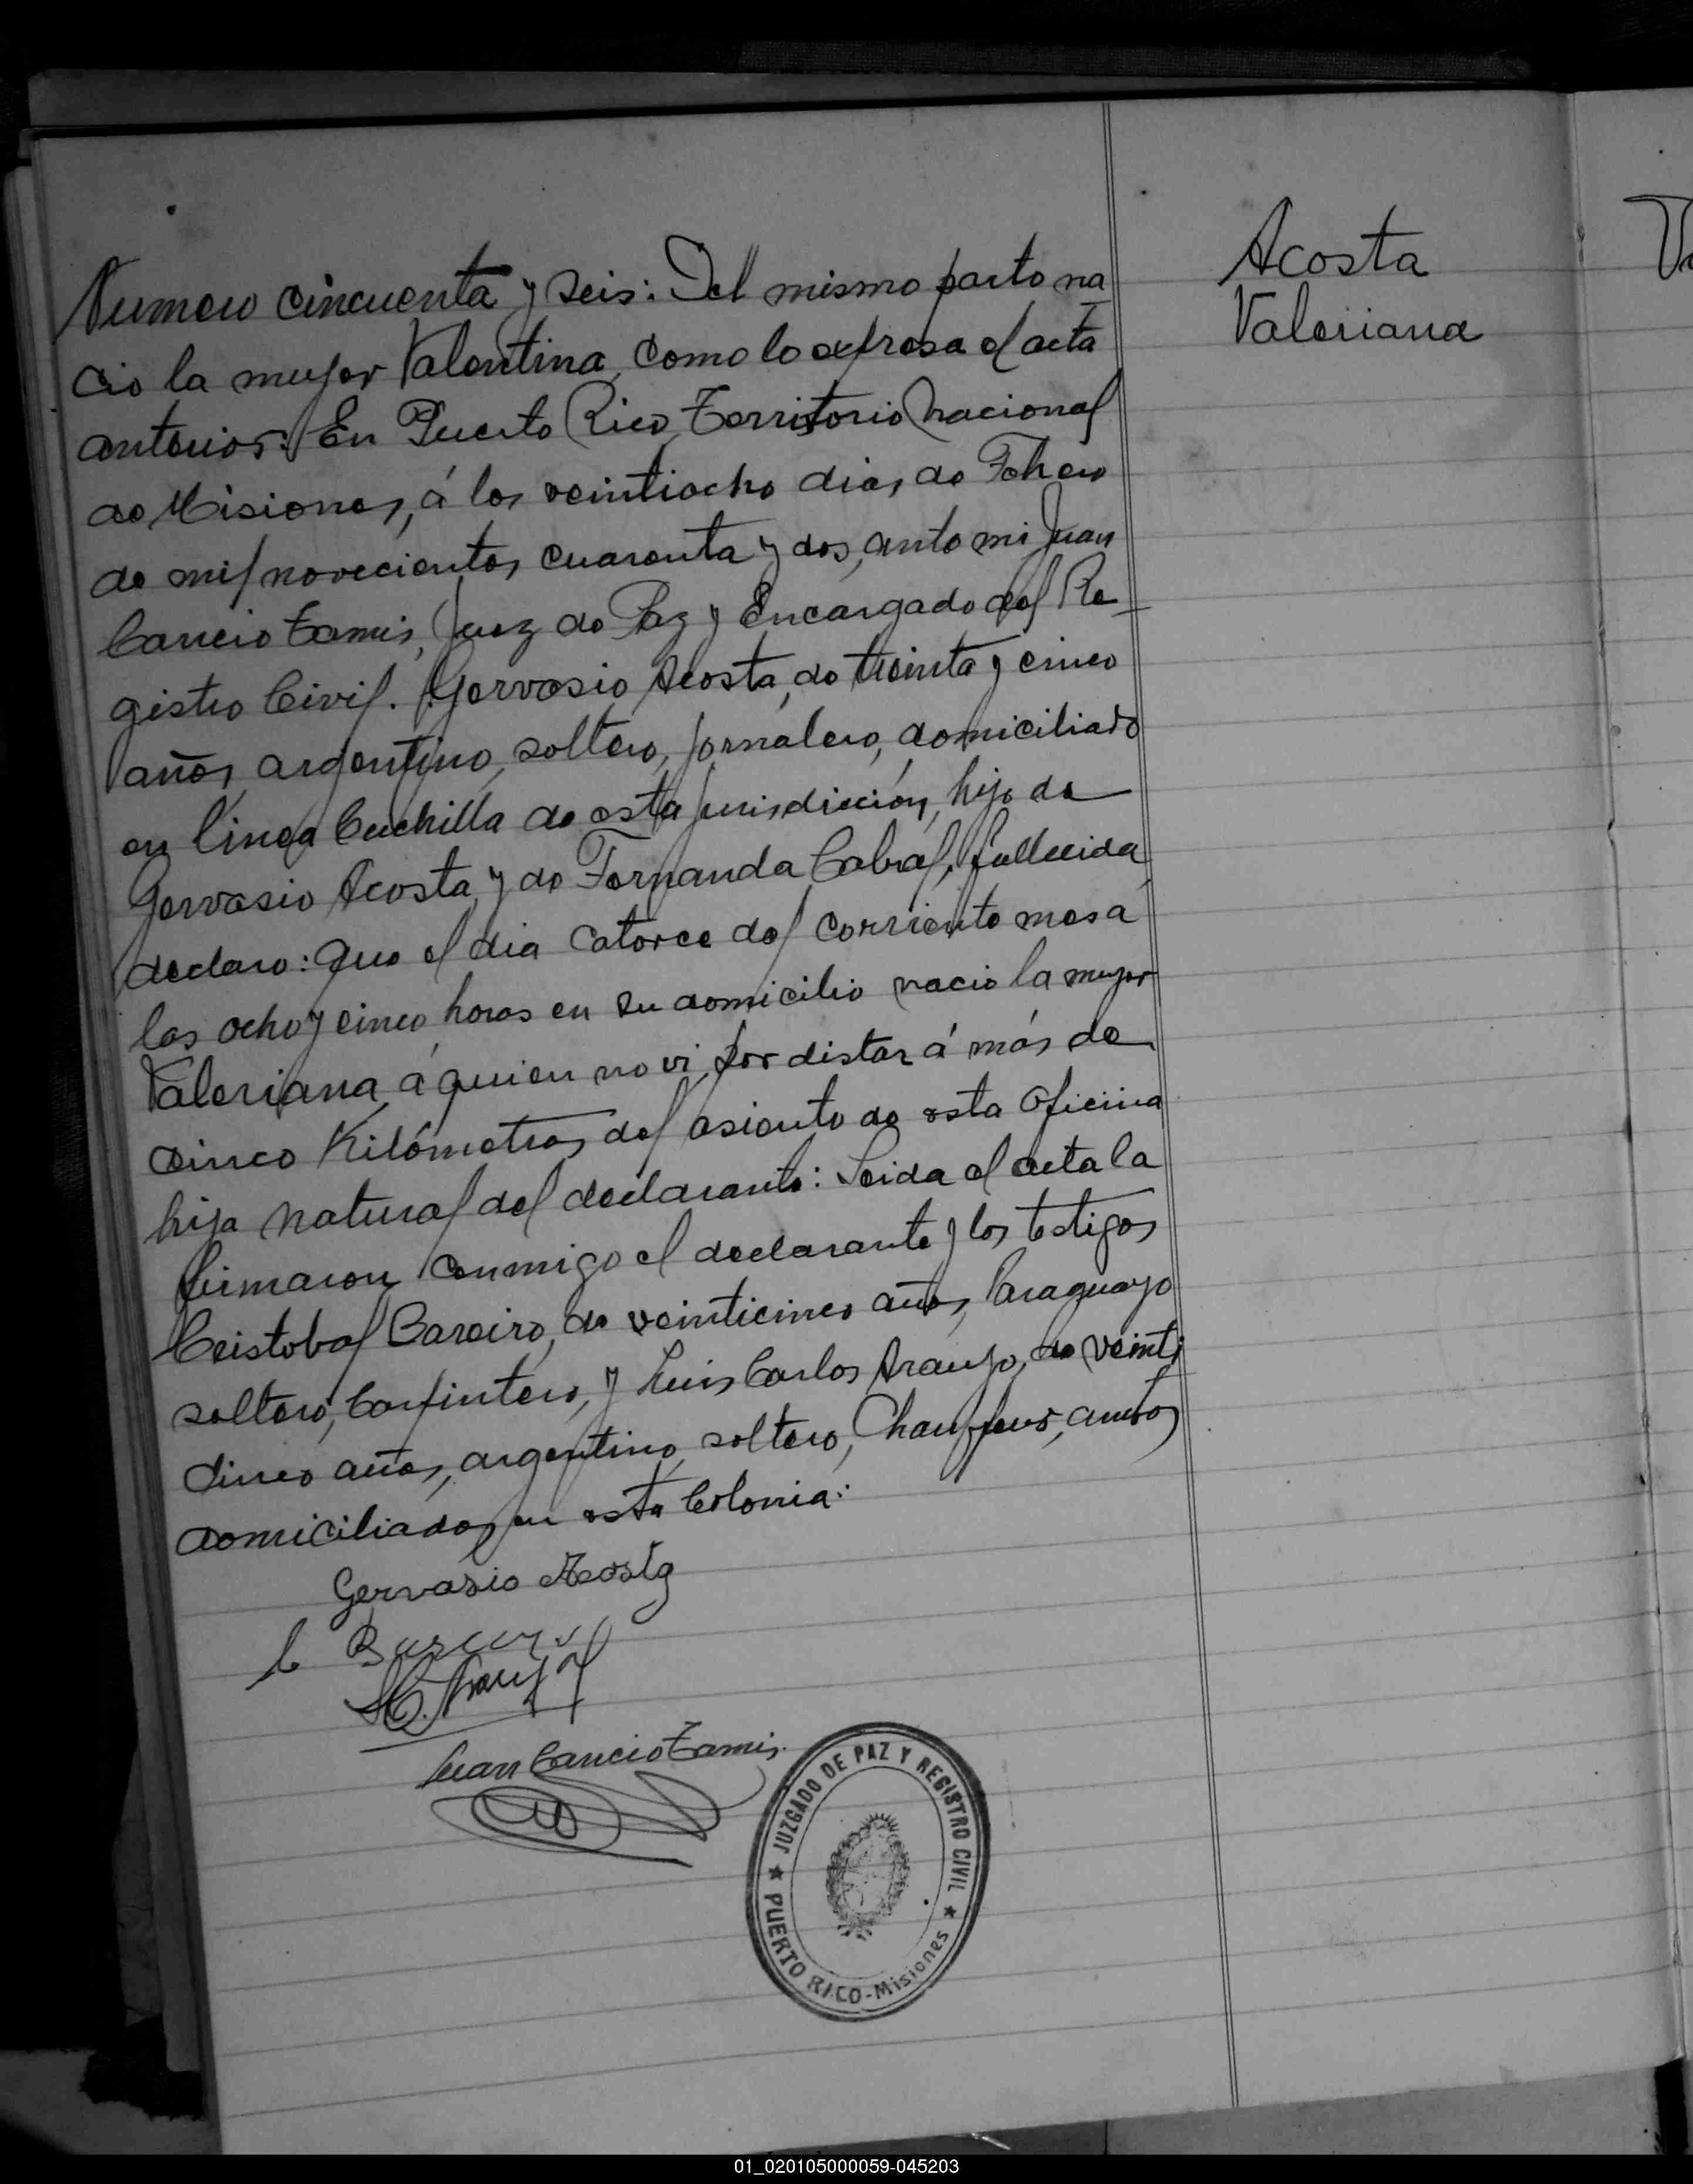 Acosta
Valeriana
Numero cincuenta y seis: Del mismo parto na
cio la mujer Valentina, como lo expresa el acta
anterior: En Puerto Rico, Territorio Nacional
de Misiones, á los veintiocho dias de Febrero
de mil novecientos cuarenta y dos, ante mi Juan
Cancio Tamis, Juez de Paz y Encargado del Re-
gistro Civil. Gervasio Acosta, de treinta y cinco
años, argentino, soltero, jornalero, domiciliado
en Linea Cuchilla de esta jurisdicción, hijo de
Gervasio Acosta y de Fernanda Cabral, fallecida
declaro: Que el dia catorce del corriente mes á
las ocho y cinco horas en su domicilio nació la mujer
Valeriana, á quien no vi por distar á más de
cinco Kilómetros del asiento de esta Oficina
hija natural del declarante: Leida el acta la
firmaron conmigo el declarante y los testigos
Cristobal Bareiro, de veinticinco años, Paraguayo
soltero, Carpintero, y Luis Carlos Araujo, de veinti
cinco años, argentino, soltero, Chauffeur, ambos
domiciliados en esta Colonia:
Gervasio Acosta
C
Juan Cancio Tamis.
★ JUZGADO DE PAZ Y REGISTRO CIVIL ★
PUERTO RICO - Misiones
01_020105000059-045203